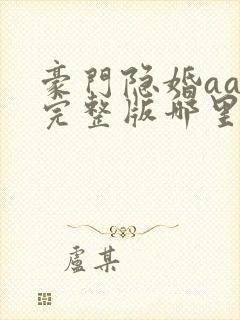 豪門隐婚aa
完整版哪里
盧某